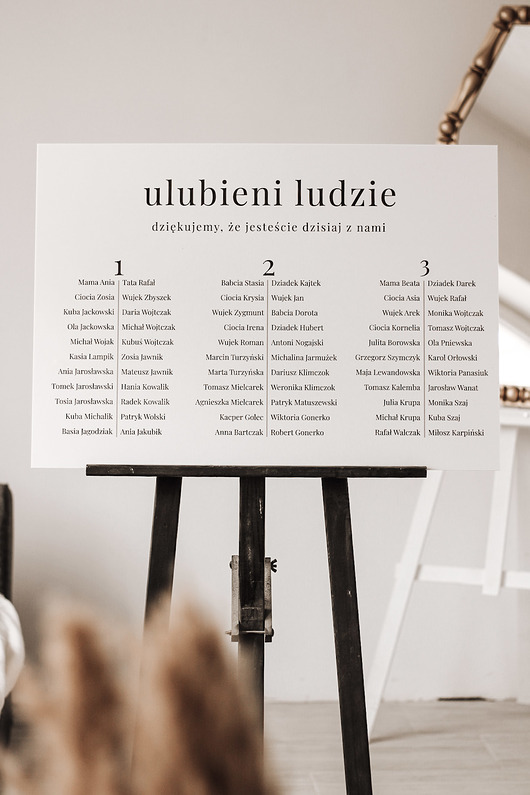 ulubieni ludzie
dziękujemy, że jesteście dzisiaj z nami
1
Mama Ania | Tata Rafał
Ciocia Zosia | Wujek Zbyszek
Kuba Jackowski | Daria Wojtczak
Ola Jackowska | Michał Wojtczak
Michał Wojak | Kubuś Wojtczak
Kasia Łampik | Zosia Jawnik
Ania Jarosławska | Mateusz Jawnik
Tomek Jarosławski | Hania Kowalik
Tosia Jarosławska | Radek Kowalik
Kuba Michalik | Patryk Wolski
Basia Jagodziak | Ania Jakubik
2
Babcia Stasia | Dziadek Kajtek
Ciocia Krysia | Wujek Jan
Wujek Zygmunt | Babcia Dorota
Ciocia Irena | Dziadek Hubert
Wujek Roman | Antoni Nogajski
Marcin Turzyński | Michalina Jarmużek
Marta Turzyńska | Dariusz Klimczok
Tomasz Mielcarek | Weronika Klimczok
Agnieszka Mielcarek | Patryk Matuszewski
Kacper Golec | Wiktoria Gonerko
Anna Bartczak | Robert Gonerko
3
Mama Beata | Dziadek Darek
Ciocia Asia | Wujek Rafał
Wujek Arek | Monika Wojtczak
Ciocia Kornelia | Tomasz Wojtczak
Julita Borowska | Ola Pniewska
Grzegorz Szymczyk | Karol Orłowski
Maja Lewandowska | Wiktoria Panasiuk
Tomasz Kalemba | Jarosław Wanat
Julia Krupa | Monika Szaj
Michał Krupa | Kuba Szaj
Rafał Walczak | Miłosz Karpiński